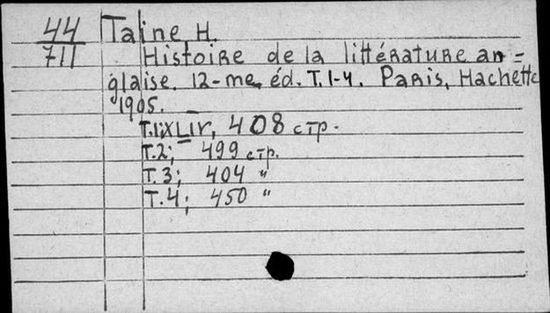 44
711
Taine H.
Histoire de la littérature an=
glaise. 12-me éd. T. 1-4. Paris, Hachette
1905.
T.1; XLIV, 408 стр.
T.2; 499 стр.
T.3; 404 "
T.4; 450 "